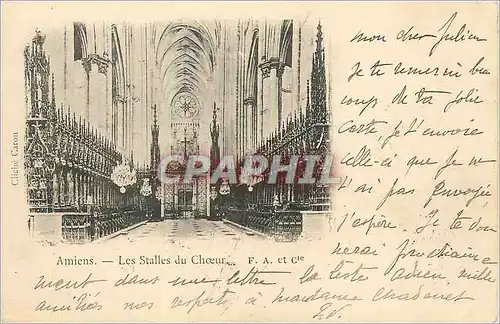 mon cher Julien
Je te remercie beau
coup de ta jolie
carte, je t'envoie
celle-ci que je ne
t'ai pas envoyée
j'espère. Je te don
nerai prochaine
Cliché Caron
CPArama.com
Amiens. — Les Stalles du Chœur. F. A. et Cie
ment dans une lettre la liste adieu mille
amitiés mes respects à madame Chadenet
E.V.